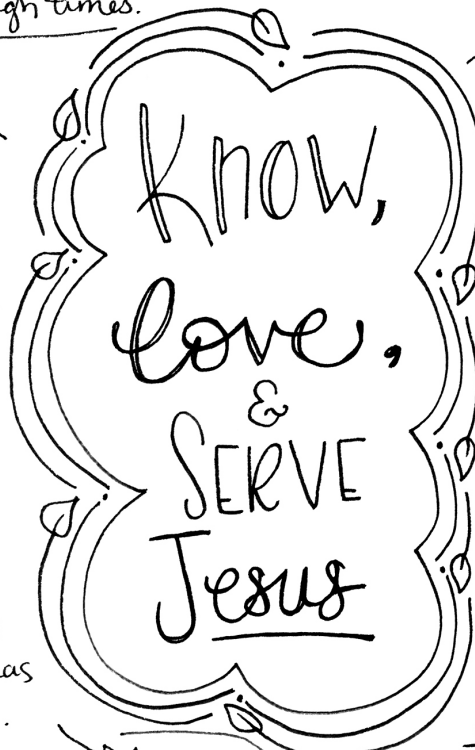 times.
Know,
love,
&
SERVE
Jesus
as